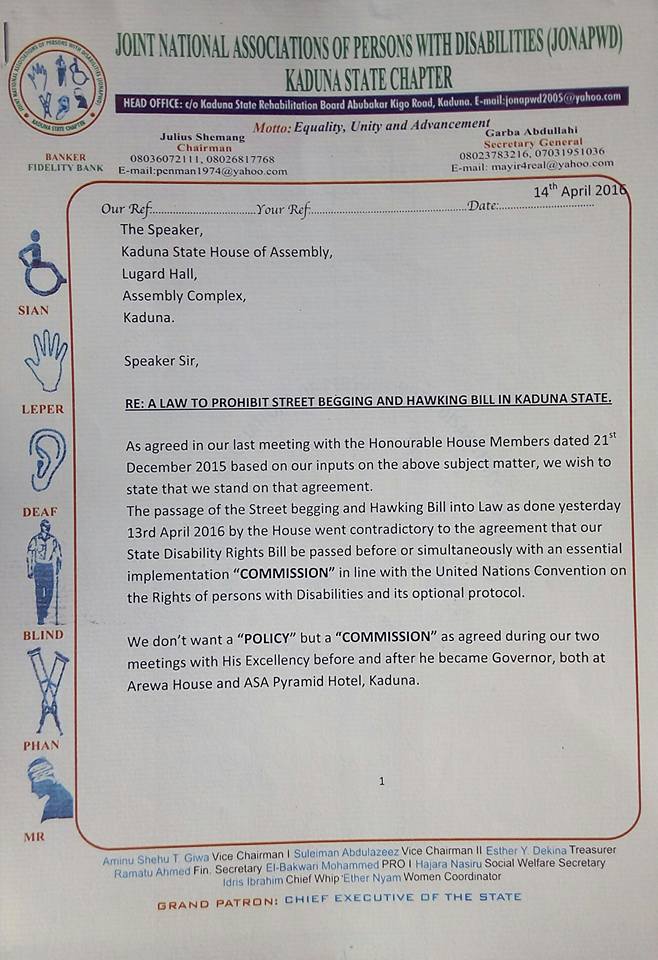 JOINT NATIONAL ASSOCIATIONS OF PERSONS WITH DISABILITIES (JONAPWD)
KADUNA STATE CHAPTER
HEAD OFFICE: c/o Kaduna State Rehabilitation Board Abubakar Kigo Road, Kaduna. E-mail:jonapwd2005@yahoo.com
Motto: Equality, Unity and Advancement
JOINT NATIONAL ASSOCIATIONS OF PERSONS WITH DISABILITIES (JONAPWD)
KADUNA STATE CHAPTER
BANKER
FIDELITY BANK
Julius Shemang
Chairman
08036072111, 08026817768
E-mail:penman1974@yahoo.com
Garba Abdullahi
Secretary General
08023783216, 07031951036
E-mail: mayir4real@yahoo.com
14th April 2016
Our Ref:..................................Your Ref:..................................................Date:..............................
The Speaker,
Kaduna State House of Assembly,
Lugard Hall,
Assembly Complex,
Kaduna.
Speaker Sir,
RE: A LAW TO PROHIBIT STREET BEGGING AND HAWKING BILL IN KADUNA STATE.
As agreed in our last meeting with the Honourable House Members dated 21st
December 2015 based on our inputs on the above subject matter, we wish to
state that we stand on that agreement.
The passage of the Street begging and Hawking Bill into Law as done yesterday
13rd April 2016 by the House went contradictory to the agreement that our
State Disability Rights Bill be passed before or simultaneously with an essential
implementation “COMMISSION” in line with the United Nations Convention on
the Rights of persons with Disabilities and its optional protocol.
We don’t want a “POLICY” but a “COMMISSION” as agreed during our two
meetings with His Excellency before and after he became Governor, both at
Arewa House and ASA Pyramid Hotel, Kaduna.
1
SIAN
LEPER
DEAF
BLIND
PHAN
MR
Aminu Shehu T. Giwa Vice Chairman I Suleiman Abdulazeez Vice Chairman II Esther Y. Dekina Treasurer
Ramatu Ahmed Fin. Secretary El-Bakwari Mohammed PRO I Hajara Nasiru Social Welfare Secretary
Idris Ibrahim Chief Whip Ether Nyam Women Coordinator
GRAND PATRON: CHIEF EXECUTIVE OF THE STATE